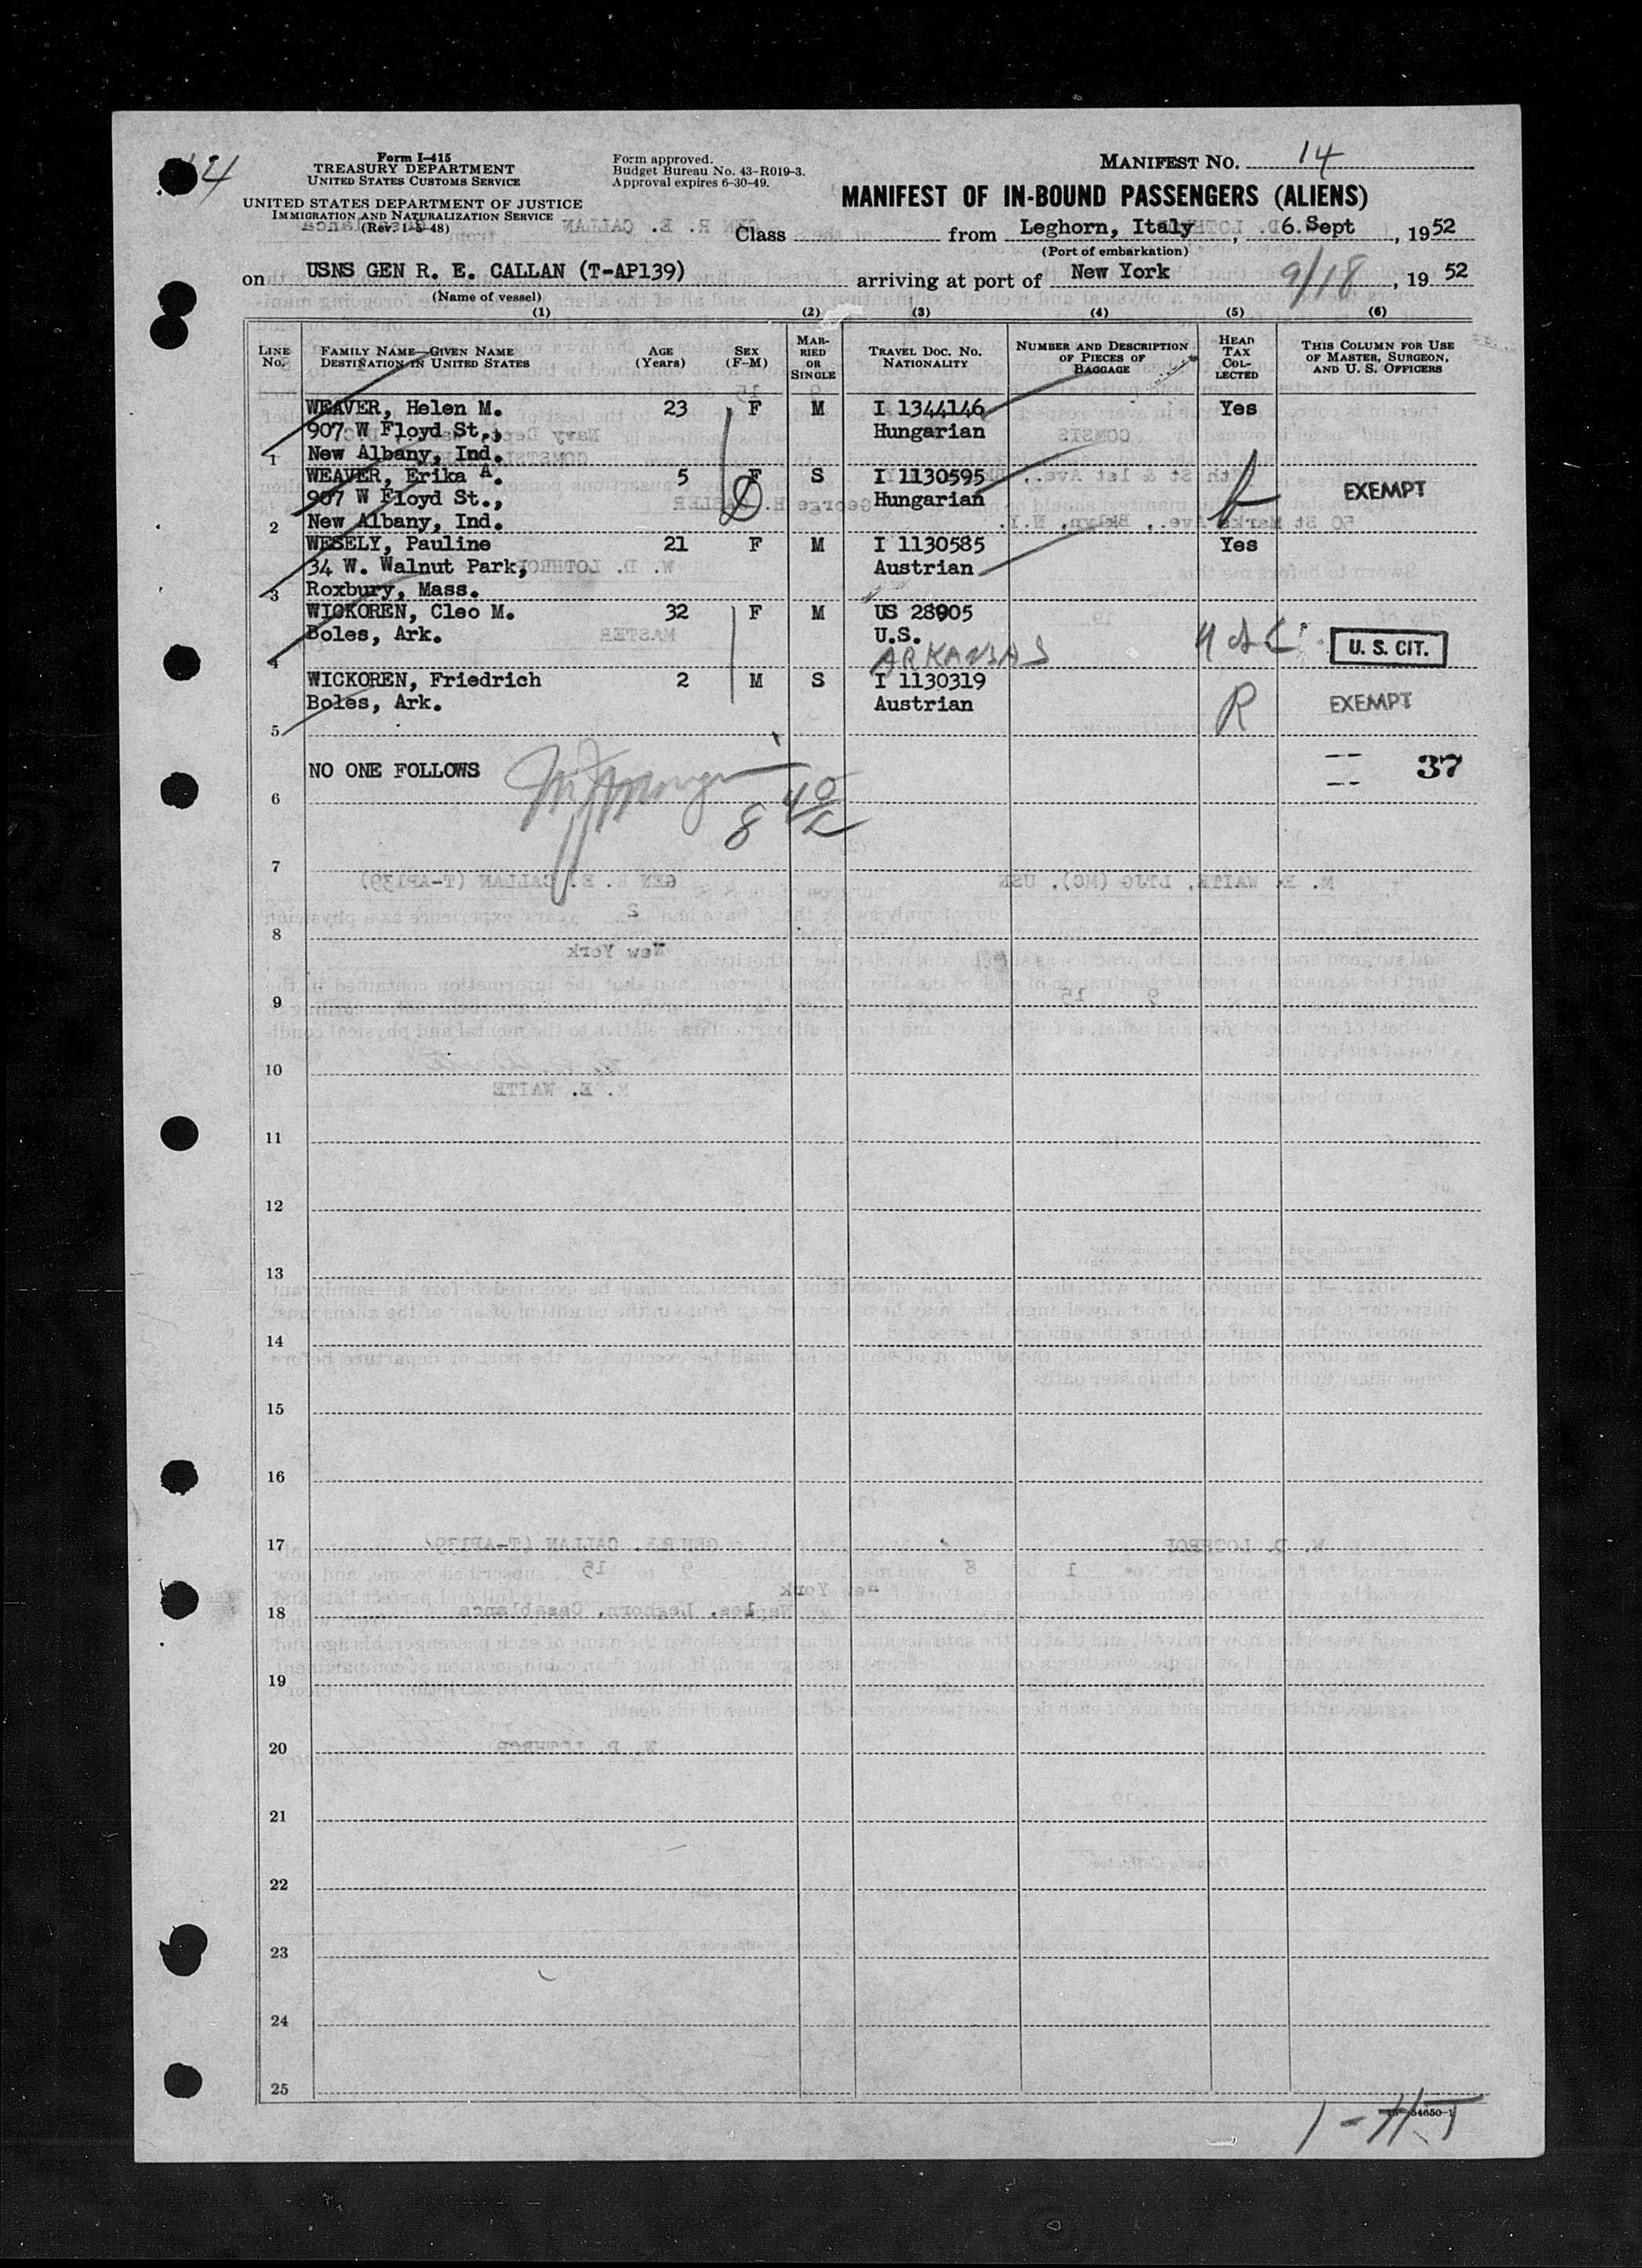 14
Form I-415
TREASURY DEPARTMENT
UNITED STATES CUSTOMS SERVICE
UNITED STATES DEPARTMENT OF JUSTICE
IMMIGRATION AND NATURALIZATION SERVICE
(Rev. 1-5-48)
Form approved.
Budget Bureau No. 43-R019-3.
Approval expires 6-30-49.
MANIFEST NO. 14
MANIFEST OF IN-BOUND PASSENGERS (ALIENS)
Class from Leghorn, Italy, 6 Sept, 1952
(Port of embarkation)
on USNS GEN R. E. CALLAN (T-AP139) arriving at port of New York 9/18, 1952
(Name of vessel)
(1) (2) (3) (4) (5) (6)
LINE NO. FAMILY NAME—GIVEN NAME DESTINATION IN UNITED STATES AGE (YEARS) SEX (F-M) MARRIED OR SINGLE TRAVEL DOC. NO. NATIONALITY NUMBER AND DESCRIPTION OF PIECES OF BAGGAGE HEAD TAX COLLECTED THIS COLUMN FOR USE OF MASTER, SURGEON, AND U. S. OFFICERS
WEAVER, Helen M. 23 F M I 1344146 Yes
907 W Floyd St., Hungarian
1 New Albany, Ind.
WEAVER, Erika A. 5 F S I 1130595
907 W Floyd St., Hungarian EXEMPT
2 New Albany, Ind.
WESELY, Pauline 21 F M I 1130585 Yes
34 W. Walnut Park, Austrian
3 Roxbury, Mass.
WICKOREN, Cleo M. 32 F M US 28905
Boles, Ark. U.S. U. S. CIT.
4 ARKANSAS
WICKOREN, Friedrich 2 M S I 1130319
Boles, Ark. Austrian R EXEMPT
5
NO ONE FOLLOWS 37
6
8
7
8
9
10
11
12
13
14
15
16
17
18
19
20
21
22
23
24
25